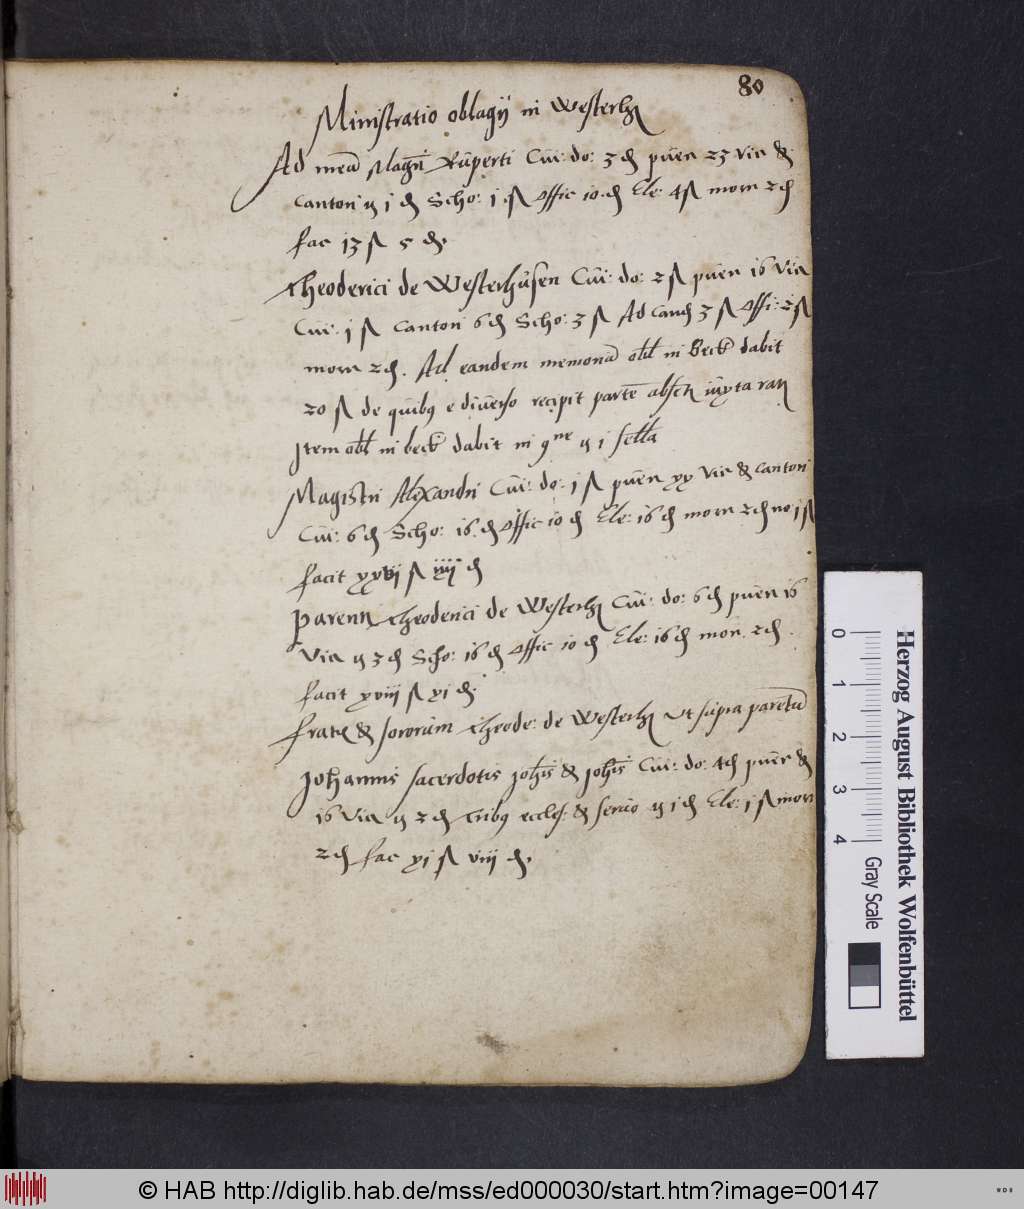 80
Ministratio oblagij in Westerhꝫ
Ad meā Magrī Rūperti Cuī: do: 3 ₰ puēn 23 vic &
cantori g i ₰ Scho: i ß offic 10 ₰ Ele: 4 ß morn 2 ₰
fac 13 ß 5 ₰.
Theoderici de Westerhūsen Cuī: do: 2 ß puēn 16 Vic
Cui: j ß cantori 6 ₰ Scho: 3 ß Ad cand 3 ß offi: 2 ß
morn 2 ₰. Ad eandem memoriā obl in Beckē dabit
20 ß de quibꝰ e diuerso recipit partē absēn iuxta ratā
Item obl in beckē dabit in 9ne g i
Magistri Alexandri Cuī: do: j ß puēn xx Vic & cantori
Cuī: 6 ₰ Scho: 16 ₰ offic 10 ₰ Ele: 16 ₰ morn 2 ₰ no i ß
facit xxvij ß iiij ₰
Parentū Theoderici de Westerhꝫ Cuī: do: 6 ₰ puēn 16
Vic g 3 ₰ Scho: 16 ₰ offic 10 ₰ Ele: 16 ₰ mor. 2 ₰.
facit xviij ß xj ₰.
Fratrū & sororum Theode: de Westerhꝫ Vt supra parentū
Johannis sacerdotis johīs & johīs Cuī: do: 4 ₰ puēn &
16 Vic g 2 ₰ Tribꝰ eccles: & g i ₰ Ele: j ß morn
2 ₰ fac xj ß viij ₰.
Herzog August Bibliothek Wolfenbüttel
0 1 2 3 4
Gray Scale
© HAB http://diglib.hab.de/mss/ed000030/start.htm?image=00147